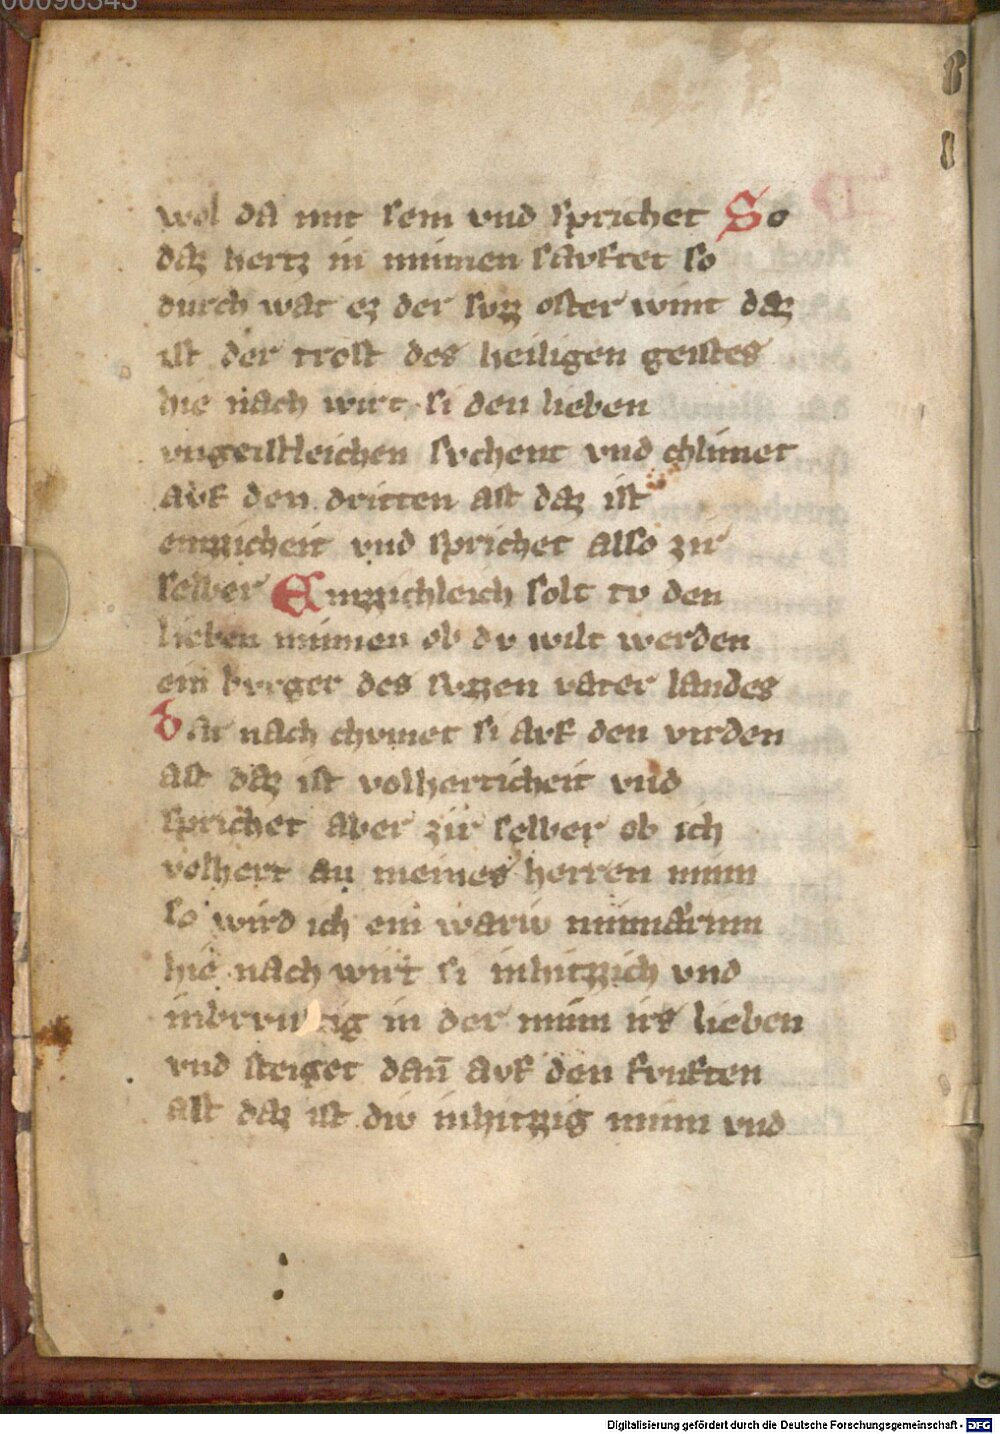 00096343
wol da mit sein vnd sprichet So
daz hertz in minnen savftet so
durch wat ez der svzz oster wint daz
ist der trost des heiligen geistes
hie nach wirt si den lieben
vngeistleichen svchent vnd chlimet
avf den dritten ast daz ist
einzzicheit vnd sprichet also zir
selber Einzzichleich solt tv den
lieben minnen ob dv wilt werden
ein bvrger des svzzen vater landes
Dar nach chvmet si avf den virden
ast daz ist volherticheit vnd
sprichet aber zir selber ob ich
volhert an meines herren minn
so wird ich ein wariv minnarinn
hie nach wirt si inhitzzich vnd
inbrvnstig in der minn irs lieben
vnd steiget dan̄ avf den fvnften
ast daz ist div inhitzzig minn vnd
Digitalisierung gefördert durch die Deutsche Forschungsgemeinschaft - DFG